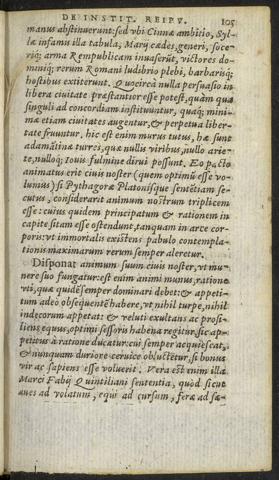 DE INSTIT. REIPV. 105
manus abstinuerunt: sed vbi Cinnæ ambitio, Syl-
læ infamis illa tabula, Marij cædes, generi, soce-
riq; arma Rempublicam inuaserũt, victores do-
miniq; rerum Romani ludibrio plebi, barbarisq;
hostibus extiterunt. Quocirca nulla persuasio in
libera ciuitate præstantior esse potest, quàm qua
singuli ad concordiam instituuntur, quaq; mini-
mæ etiam ciuitates augentur, & perpetua liber-
tate fruuntur, hic est enim murus tutus, hæ sunt
adamãtinæ turres, quæ nullis viribus, nullo arie-
te, nulloq; Iouis fulmine dirui possunt. Eo pacto
animatus erit ciuis noster (quem optimũ esse vo-
lumus) si Pythagoræ Platonisque sentẽtiam se-
cutus, considerarit animum nostrum triplicem
esse: cuius quidem principatum & rationem in
capite sitam esse ostendunt, tanquam in arce cor-
poris: vt immortalis existens pabulo contempla-
tionis maximarum rerum semper aleretur.
Disponat animum suum ciuis noster, vt mu-
nere suo fungatur: est enim animi munus, ratione
vti, quæ quidẽ semper dominari debet: & appeti-
tum adeò obsequentẽ habere, vt nihil turpe, nihil
indecorum appetat: & veluti exultans ac prosi-
liens equus, optimi sessoris habena regitur, sic ap-
petitus à ratione ducatur: cui semper acquiescat,
& nunquam duriore ceruice obluctetur, si bonus
vir ac sapiens esse voluerit. Vera est enim illa
Marci Fabij Quintiliani sententia, quòd sicut
aues ad volatum, equi ad cursum, feræ ad sæ-